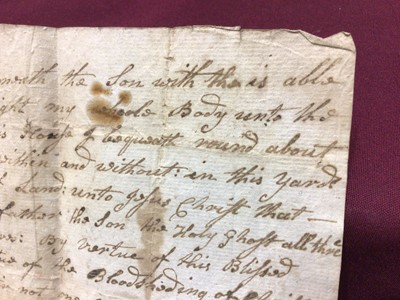 the Son with the is able
my whole Body unto the
House I bequath round about
within and without: in this Yard
Land: unto Jesus Christ that—
father the Son the Hory Ghost all
By vertue of this Blissed
of the Bloodsheding of
not one